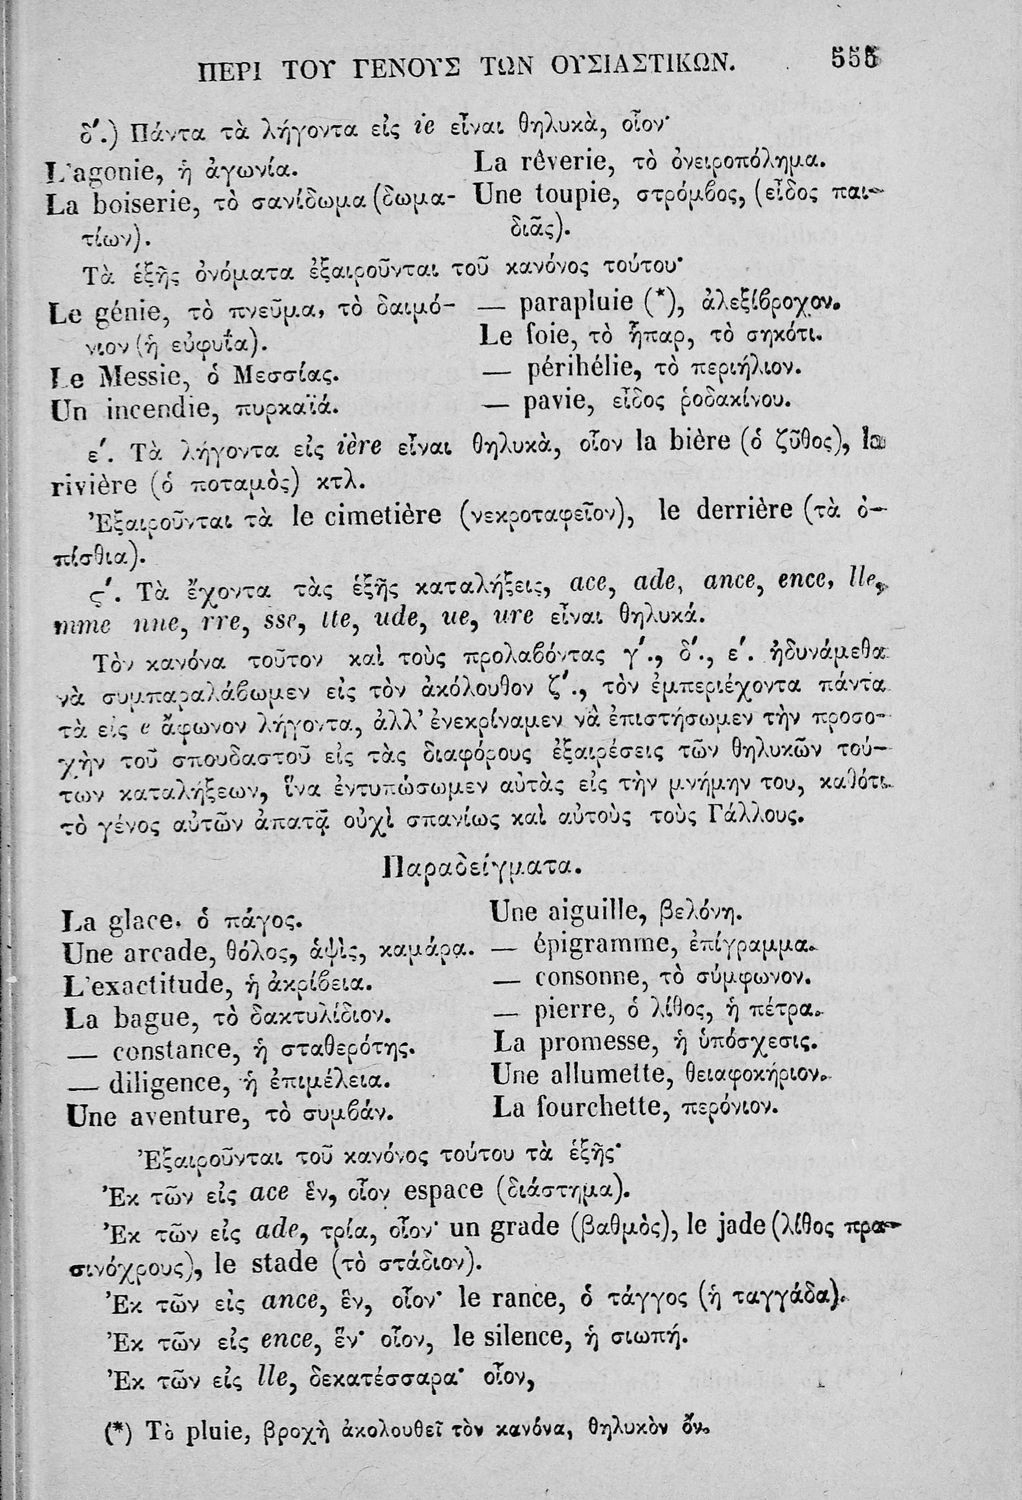 ΠΕΡΙ ΤΟΥ ΓΕΝΟΥΣ ΤΩΝ ΟΥΣΙΑΣΤΙΚΩΝ. 555
δʹ.) Πάντα τὰ λήγοντα εἰς ie εἶναι θηλυκὰ, οἷον·
L'agonie, ἡ ἀγωνία.
La boiserie, τὸ σανίδωμα (δωμα-
τίων).
La rêverie, τὸ ὀνειροπόλημα.
Une toupie, στρόμβος, (εἶδος παι-
διᾶς).
Τὰ ἑξῆς ὀνόματα ἐξαιροῦνται τοῦ κανόνος τούτου·
Le génie, τὸ πνεῦμα, τὸ δαιμό-
νιον (ἡ εὐφυΐα).
Le Messie, ὁ Μεσσίας.
Un incendie, πυρκαϊά.
— parapluie (*), ἀλεξίβροχον.
Le foie, τὸ ἧπαρ, τὸ σηκότι.
— périhélie, τὸ περιήλιον.
— pavie, εἶδος ῥοδακίνου.
εʹ. Τὰ λήγοντα εἰς ière εἶναι θηλυκὰ, οἷον la bière (ὁ ζῦθος), la
rivière (ὁ ποταμὸς) κτλ.
Ἐξαιροῦνται τὰ le cimetière (νεκροταφεῖον), le derrière (τὰ ὀ-
πίσθια).
ϛʹ. Τὰ ἔχοντα τὰς ἑξῆς καταλήξεις, ace, ade, ance, ence, lle,
mme nne, rre, sse, tte, ude, ue, ure εἶναι θηλυκά.
Τὸν κανόνα τοῦτον καὶ τοὺς προλαβόντας γʹ., δʹ., εʹ. ἠδυνάμεθα
νὰ συμπαραλάβωμεν εἰς τὸν ἀκόλουθον ζʹ., τὸν ἐμπεριέχοντα πάντα
τὰ εἰς e ἄφωνον λήγοντα, ἀλλ' ἐνεκρίναμεν νὰ ἐπιστήσωμεν τὴν προσο-
χὴν τοῦ σπουδαστοῦ εἰς τὰς διαφόρους ἐξαιρέσεις τῶν θηλυκῶν τού-
των καταλήξεων, ἵνα ἐντυπώσωμεν αὐτὰς εἰς τὴν μνήμην του, καθότι
τὸ γένος αὐτῶν ἀπατᾷ οὐχὶ σπανίως καὶ αὐτοὺς τοὺς Γάλλους.
Παραδείγματα.
La glace. ὁ πάγος.
Une arcade, θόλος, ἁψὶς, καμάρα.
L'exactitude, ἡ ἀκρίβεια.
La bague, τὸ δακτυλίδιον.
— constance, ἡ σταθερότης.
— diligence, ἡ ἐπιμέλεια.
Une aventure, τὸ συμβάν.
Une aiguille, βελόνη.
— épigramme, ἐπίγραμμα.
— consonne, τὸ σύμφωνον.
— pierre, ὁ λίθος, ἡ πέτρα.
La promesse, ἡ ὑπόσχεσις.
Une allumette, θειαφοκήριον.
La fourchette, περόνιον.
Ἐξαιροῦνται τοῦ κανόνος τούτου τὰ ἑξῆς·
Ἐκ τῶν εἰς ace ἓν, οἷον espace (διάστημα).
Ἐκ τῶν εἰς ade, τρία, οἷον· un grade (βαθμὸς), le jade (λίθος πρα-
σινόχρους), le stade (τὸ στάδιον).
Ἐκ τῶν εἰς ance, ἓν, οἷον· le rance, ὁ τάγγος (ἡ ταγγάδα).
Ἐκ τῶν εἰς ence, ἓν· οἷον, le silence, ἡ σιωπή.
Ἐκ τῶν εἰς lle, δεκατέσσαρα· οἷον,
(*) Τὸ pluie, βροχὴ ἀκολουθεῖ τὸν κανόνα, θηλυκὸν ὄν.